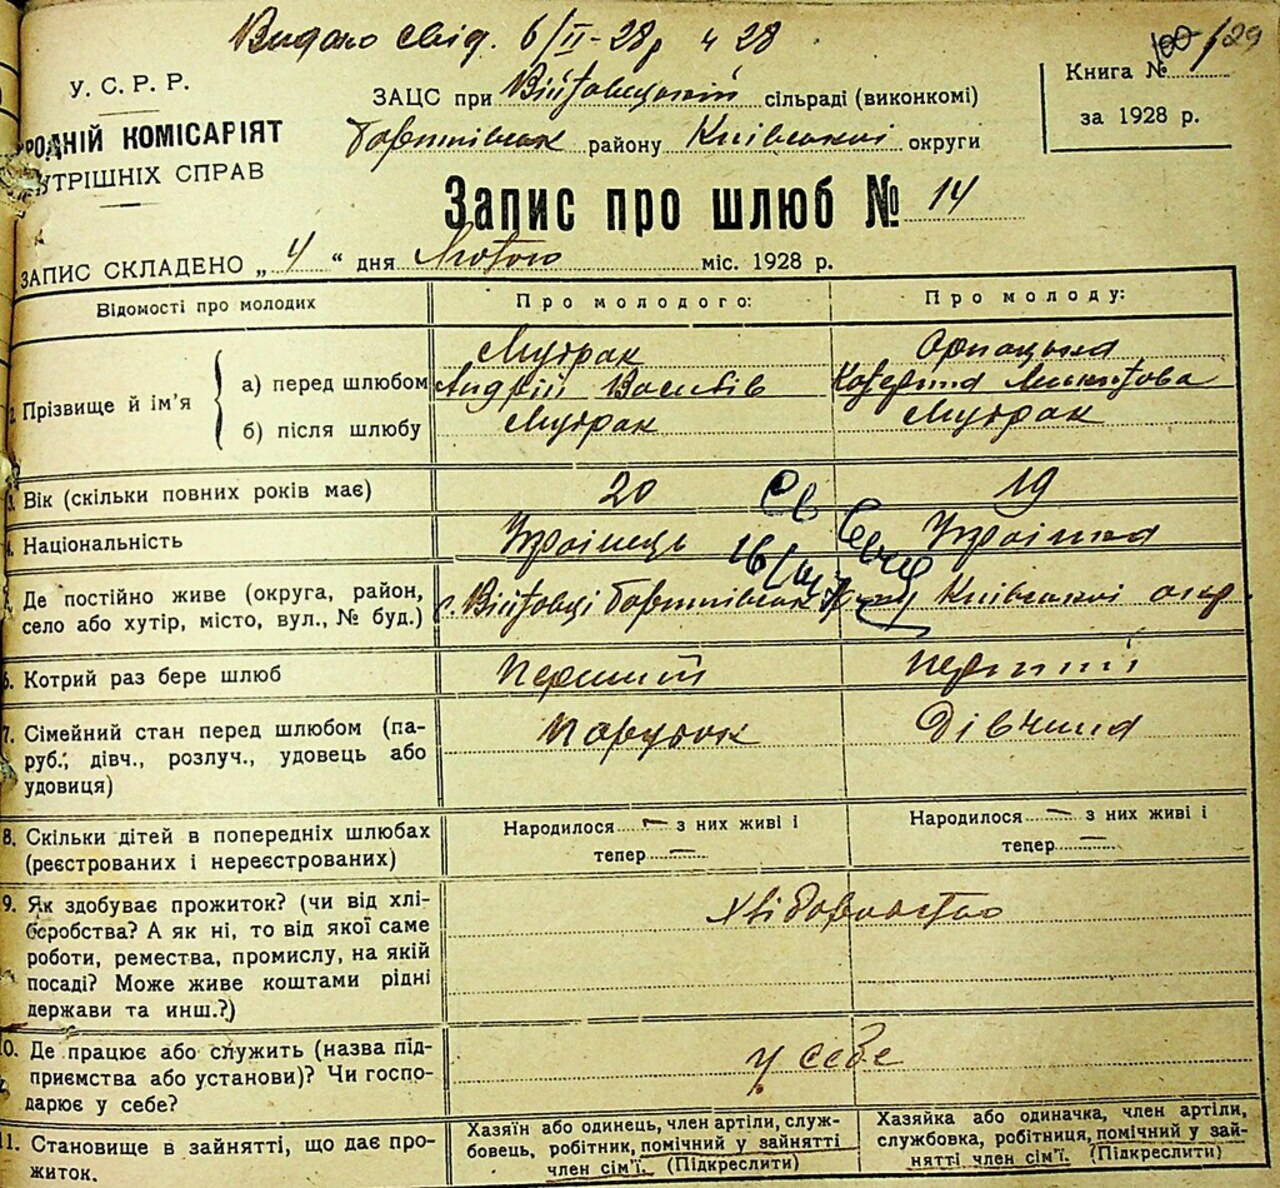 Видано свід. 6/II-28р ч 28
100 129
У. С. Р. Р.
РОДНІЙ КОМІСАРІЯТ
УТРІШНІХ СПРАВ
ЗАЦС при Війтовецький сільраді (виконкомі)
району Київської округи
Книга №
за 1928 р.
Запис про шлюб № 14
ЗАПИС СКЛАДЕНО „ 4 “ дня Лютого міс. 1928 р.
Відомості про молодих
Про молодого:
Про молоду:
2. Прізвище й ім'я
а) перед шлюбом
б) після шлюбу
Андрій Василів
Катерина Микитова
3. Вік (скільки повних років має)
20
19
4. Національність
Українець
Українка
5. Де постійно живе (округа, район,
село або хутір, місто, вул., № буд.)
с. Війтовці Київської окр.
6. Котрий раз бере шлюб
Перший
перший
7. Сімейний стан перед шлюбом (па-
руб.; дівч., розлуч., удовець або
удовиця)
Парубок
Дівчина
8. Скільки дітей в попередніх шлюбах
(реєстрованих і нереєстрованих)
Народилося — з них живі і
тепер —
Народилося — з них живі і
тепер —
9. Як здобуває прожиток? (чи від хлі-
боробства? А як ні, то від якої саме
роботи, ремества, промислу, на якій
посаді? Може живе коштами рідні
держави та инш.?)
хліборобство
10. Де працює або служить (назва під-
приємства або установи)? Чи госпо-
дарює у себе?
у себе
11. Становище в зайнятті, що дає про-
житок.
Хазяїн або одинець, член артіли, служ-
бовець, робітник, помічний у зайнятті
член сім'ї. (Підкреслити)
Хазяйка або одиначка, член артіли,
службовка, робітниця, помічний у зай-
нятті член сім'ї. (Підкреслити)